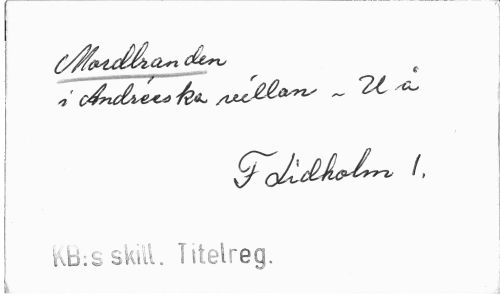 Mordbranden
i Andréeska villan - U å
F Lidholm 1.
KB:s skill. Titelreg.